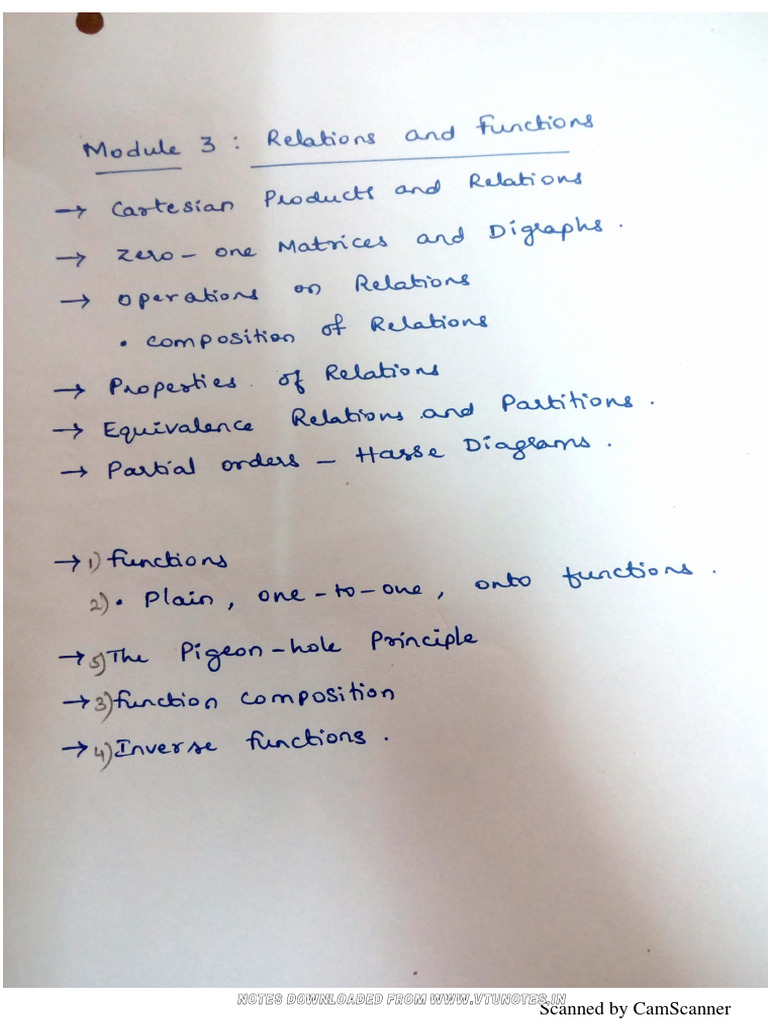 Module 3 : Relations and functions
→ Cartesian Products and Relations
→ Zero - one Matrices and Digraphs .
→ operations on Relations
• composition of Relations
→ Properties of Relations
→ Equivalence Relations and Partitions .
→ Partial orders - Hasse Diagrams .
→ 1) functions
2) • Plain , one-to-one , onto functions .
→ 5) The Pigeon-hole Principle
→ 3) function composition
→ 4) Inverse functions .
NOTES DOWNLOADED FROM WWW.VTUNOTES.IN
Scanned by CamScanner